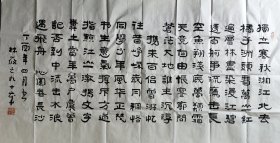 獨立寒秋湘江北去
橘子洲頭看萬山紅
遍層林盡染漫江碧
透百舸爭流鷹擊長
空魚翔淺底萬類霜
天競自由悵寥廓問
蒼茫大地誰主沉浮
攜來百侶曾遊憶
往昔崢嶸歲月稠恰
同學少年風華正茂
書生意氣揮斥方遒
指點江山激揚文字
糞土當年萬戶侯曾
記否到中流擊水浪
遏飛舟 沁園春長沙
丁酉年四月